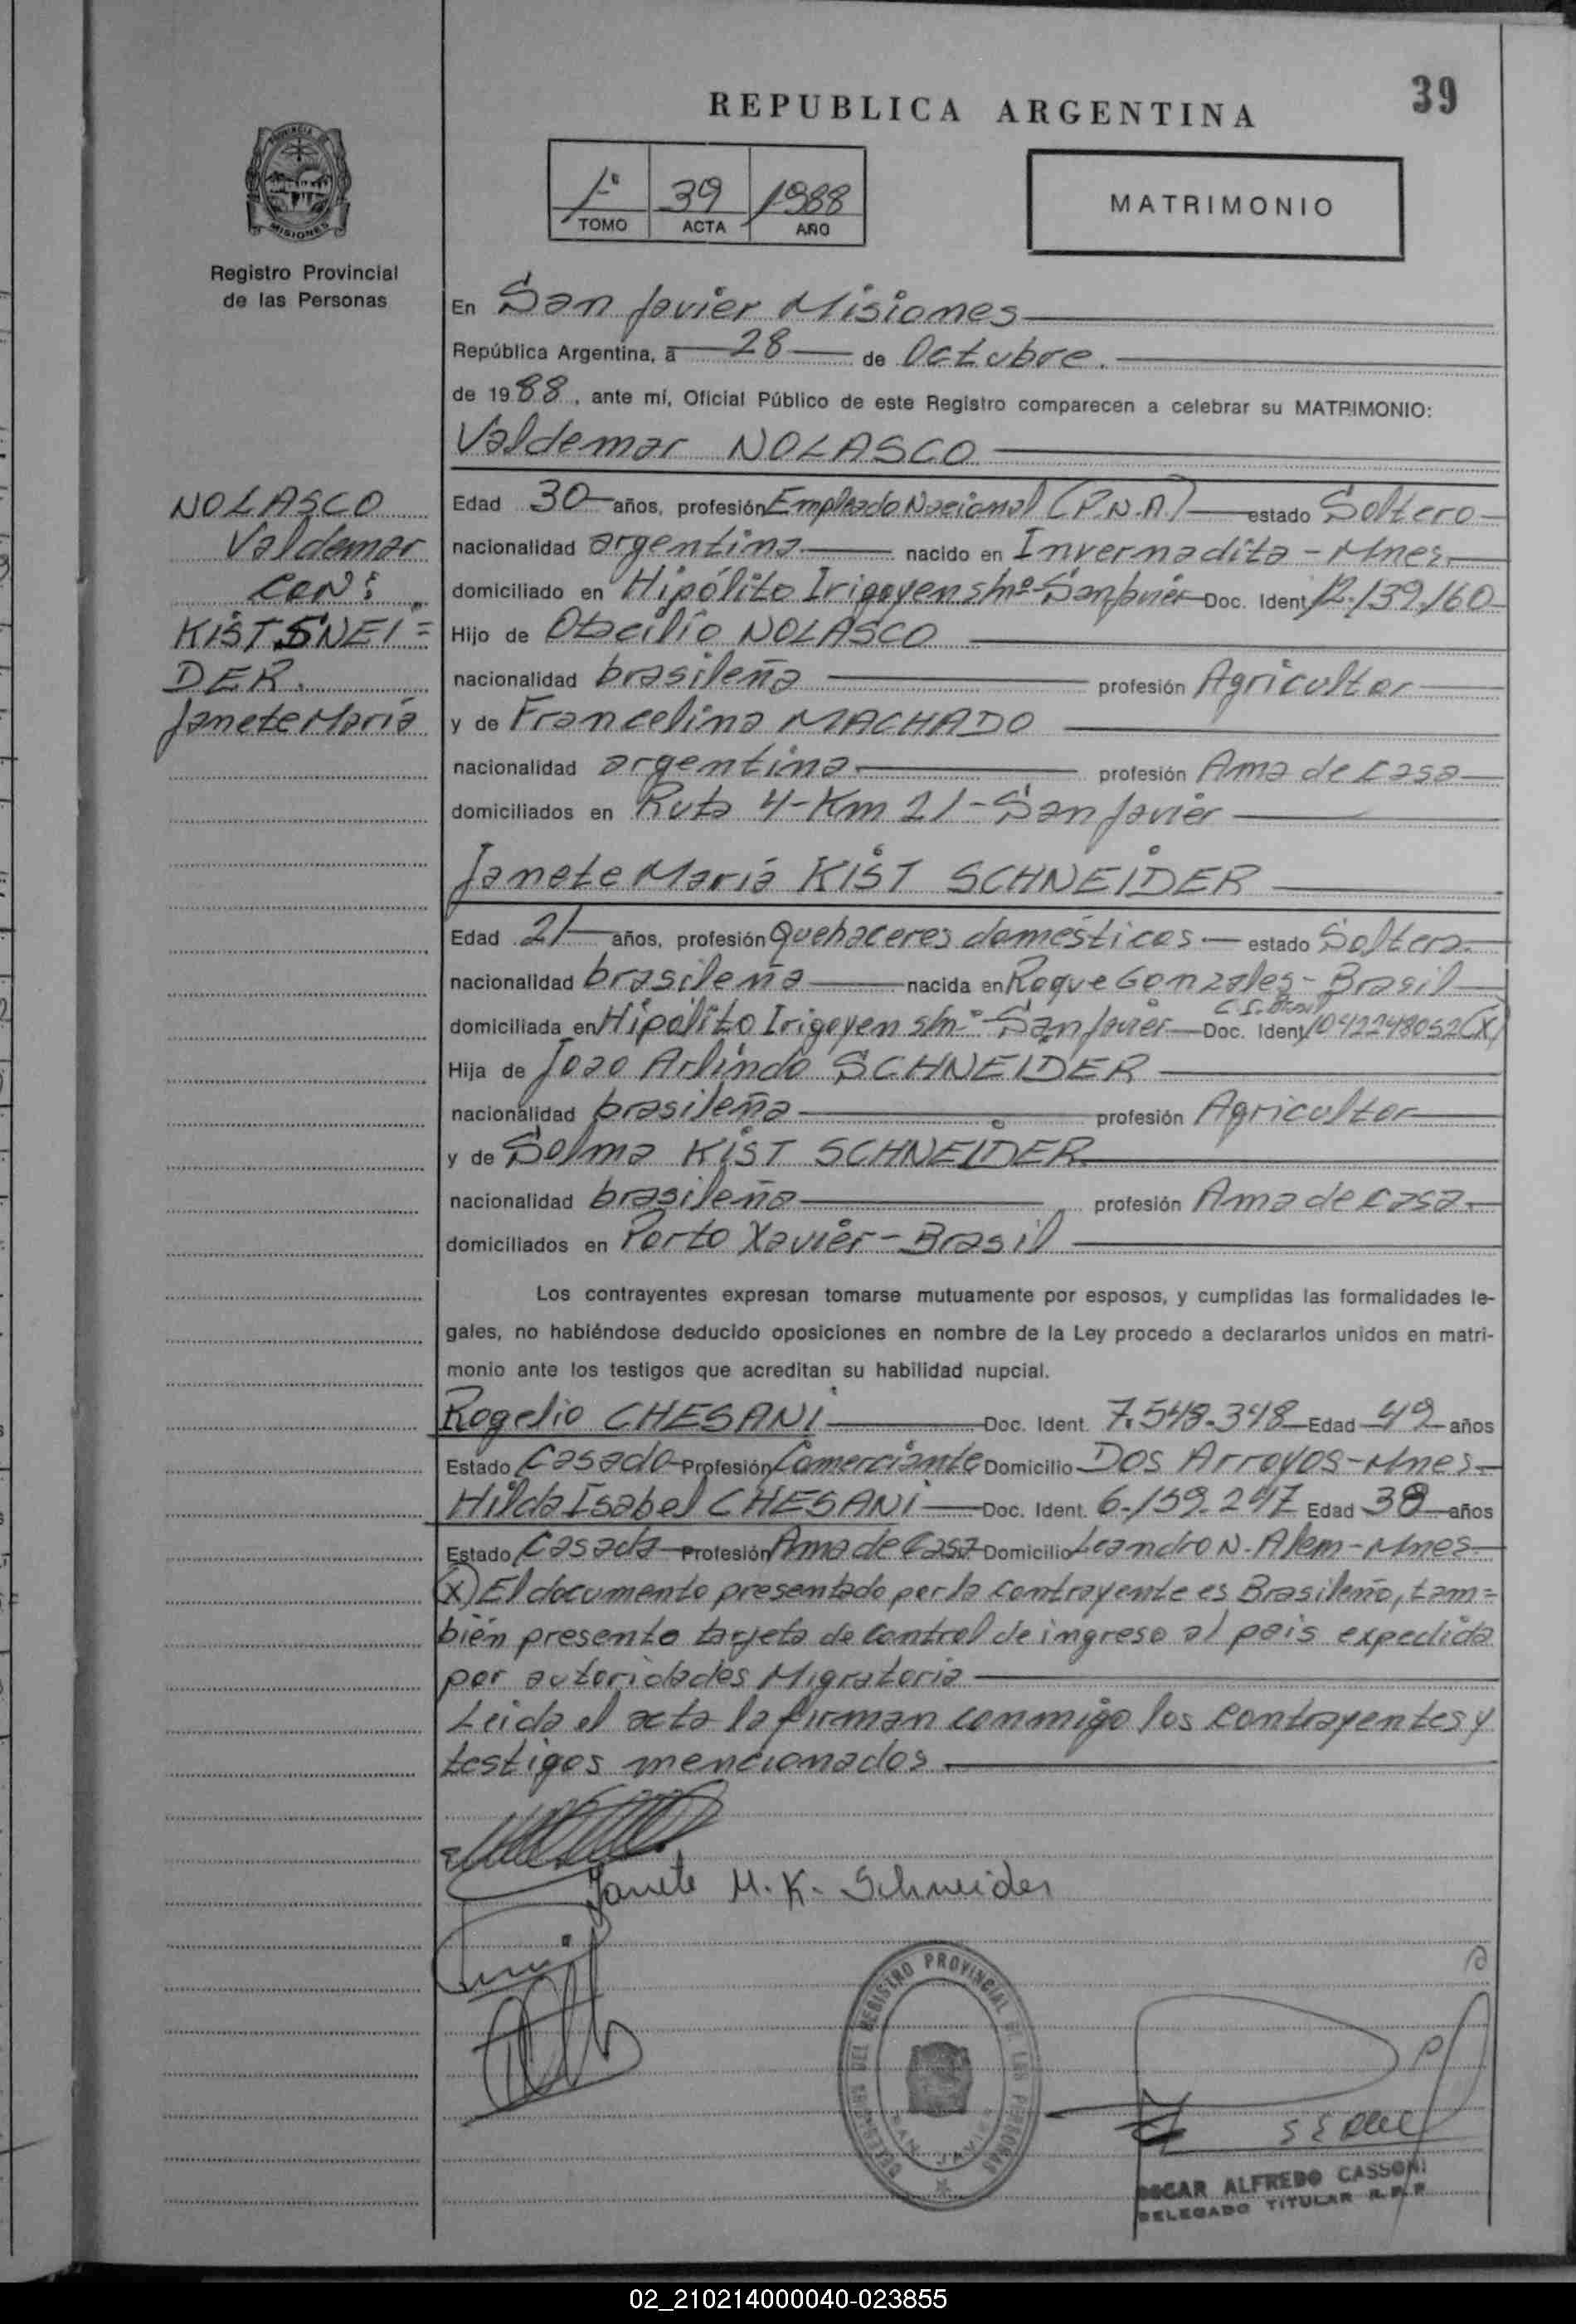 39
REPUBLICA ARGENTINA
1º 39 1988
TOMO ACTA AÑO
MATRIMONIO
PROVINCIA DE
MISIONES
Registro Provincial
de las Personas
En San Javier Misiones
República Argentina, a 28 de Octubre.
de 1988, ante mí, Oficial Público de este Registro comparecen a celebrar su MATRIMONIO:
Valdemar NOLASCO
NOLASCO
Valdemar
CON:
KIST SNEI=
DER.
Janete María
Edad 30 años, profesión Empleado Nacional (P.N.A.) estado Soltero
nacionalidad argentina nacido en Invernadita - Mnes.
domiciliado en Hipólito Irigoyen s/nº - San Javier Doc. Ident. 12.139.160
Hijo de Otacilio NOLASCO
nacionalidad brasileña profesión Agricultor
y de Francelina MACHADO
nacionalidad argentina profesión Ama de casa
domiciliados en Ruta 4 - Km 21 - San Javier
Janete María KIST SCHNEIDER
Edad 21 años, profesión Quehaceres domésticos estado Soltera.
nacionalidad brasileña nacida en Roque Gonzales - Brasil
C.I. Brasil
domiciliada en Hipólito Irigoyen s/nº - San Javier Doc. Ident. 1042248052 (X)
Hija de Joao Arlindo SCHNEIDER
nacionalidad brasileña profesión Agricultor
y de Selma KIST SCHNEIDER
nacionalidad brasileña profesión Ama de casa.
domiciliados en Porto Xavier - Brasil
Los contrayentes expresan tomarse mutuamente por esposos, y cumplidas las formalidades le-
gales, no habiéndose deducido oposiciones en nombre de la Ley procedo a declararlos unidos en matri-
monio ante los testigos que acreditan su habilidad nupcial.
Rogelio CHESANI Doc. Ident. 7.548.348 Edad 49 años
Estado Casado Profesión Comerciante Domicilio DOS Arroyos - Mnes.
Hilda Isabel CHESANI Doc. Ident. 6.159.247 Edad 38 años
Estado Casada Profesión Ama de Casa Domicilio Leandro N. Alem - Mnes.
(X) El documento presentado por la contrayente es Brasileño, tam=
bién presento tarjeta de control de ingreso al pais expedida
por autoridades Migratoria
Leida el acta la firman conmigo los contrayentes y
testigos mencionados
Janete M. K. Schneider
DEL REGISTRO PROVINCIAL DE LAS PERSONAS
SAN JAVIER
OSCAR ALFREDO CASSONI
DELEGADO TITULAR R.P.P.
02_210214000040-023855